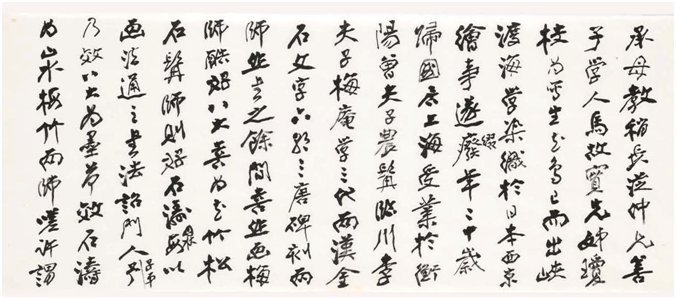 承母教稍長從仲兄善
子學人馬故實先姊瓊
枝為寫生花鳥已而出峽
渡海學染織於日本西京
繪事遂廢輟年二十歲
歸國居上海受業於衡
陽曾夫子農髯臨川李
夫子梅庵學三代兩漢金
石文字六朝三唐碑刻兩
師作書之餘間喜作画梅
師酷好八大喜為花竹松
石髯師則好石濤以
画法通之書法詔門人子弟予
乃效八大為墨荷效石濤
為山水梅竹兩師嗟許謂